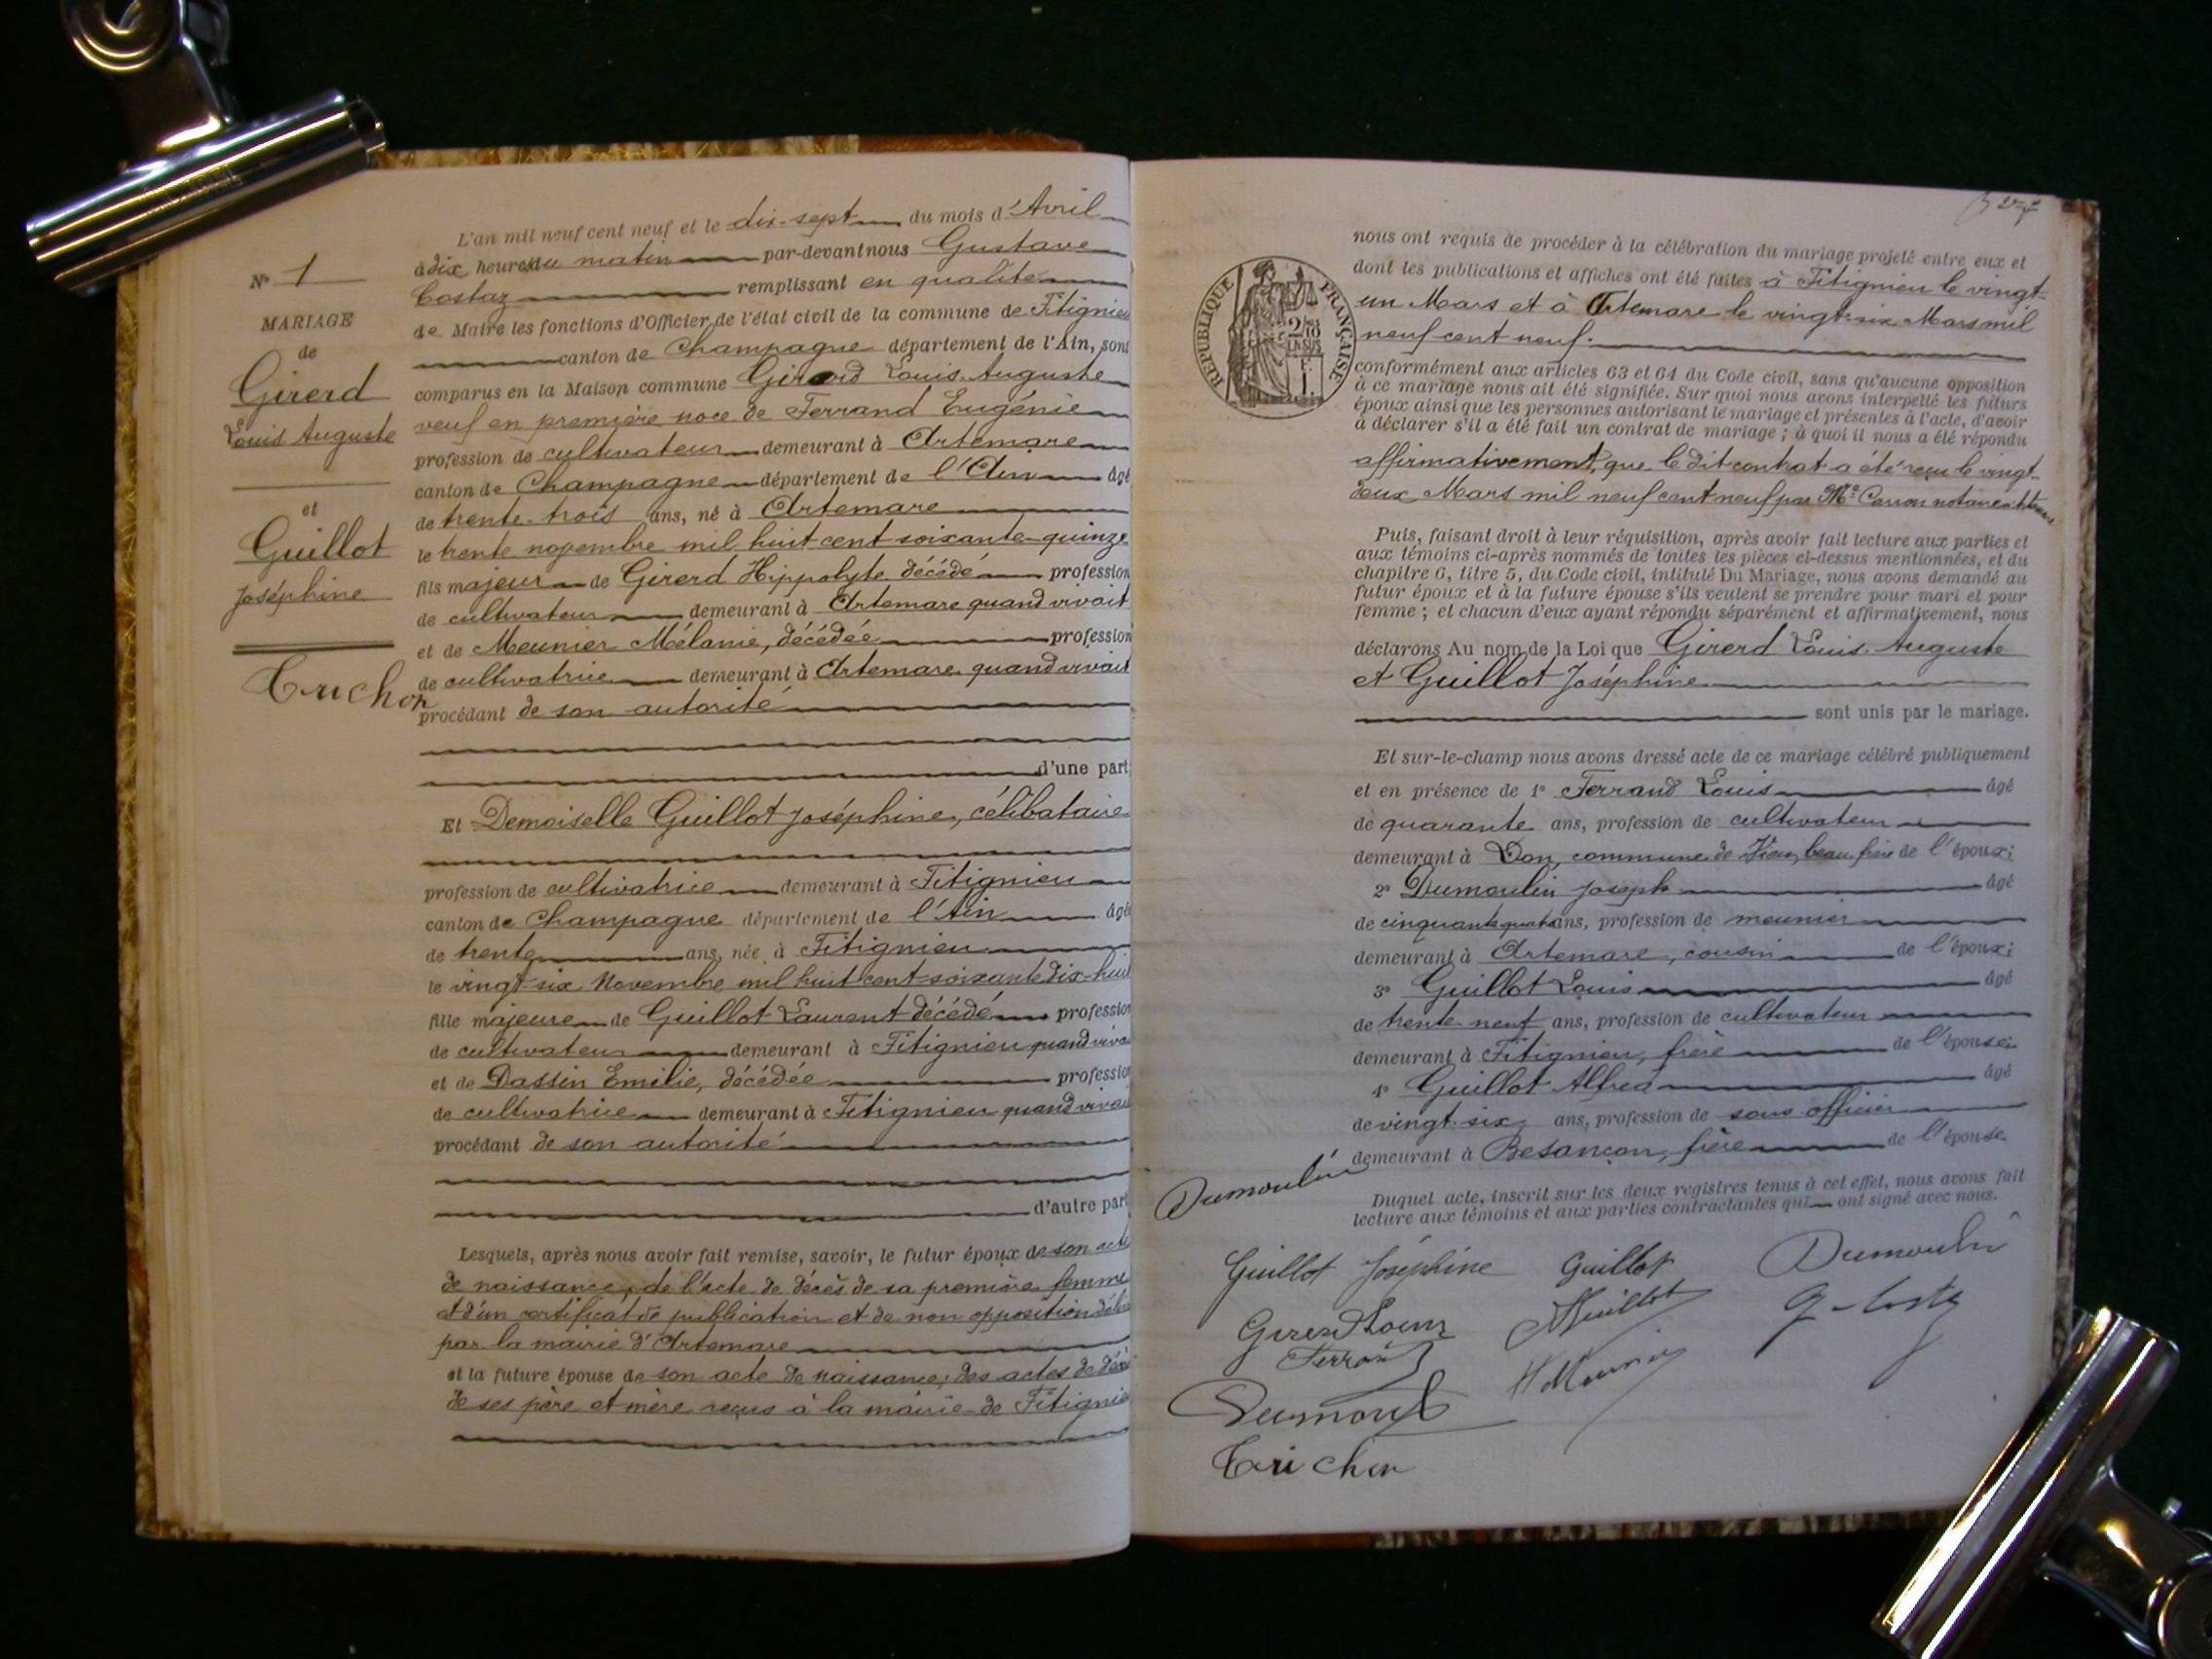 N° 1
MARIAGE
de
Girerd
Louis Auguste
et
Guillot
Joséphine
Truchon
L'an mil neuf cent neuf et le dix-sept du mois d'Avril
à dix heures du matin par-devant nous Gustave
Costaz remplissant en qualité
de Maire les fonctions d'Officier de l'état civil de la commune de Fitignieu
canton de Champagne département de l'Ain, sont
comparus en la Maison commune Girerd Louis Auguste
veuf en première noce de Ferrand Eugénie
profession de cultivateur demeurant à Artemare
canton de Champagne département de l'Ain âgé
de trente-trois ans, né à Artemare
le trente novembre mil huit cent soixante-quinze
fils majeur de Girerd Hippolyte décédé profession
de cultivateur demeurant à Artemare quand vivait
et de Meunier Mélanie, décédée profession
de cultivatrice demeurant à Artemare quand vivait
procédant de son autorité
d'une part
Et Demoiselle Guillot Joséphine, célibataire
profession de cultivatrice demeurant à Fitignieu
canton de Champagne département de l'Ain âgée
de trente ans, née à Fitignieu
le vingt-six Novembre mil huit cent soixante dix-huit
fille majeure de Guillot Laurent décédé profession
de cultivateur demeurant à Fitignieu quand viva
et de Dassin Emilie, décédée profession
de cultivatrice demeurant à Fitignieu quand vivai
procédant de son autorité
d'autre part
Lesquels, après nous avoir fait remise, savoir, le futur époux de son acte
de naissance, de l'acte de décès de sa première femme
et d'un certificat de publication et de non opposition déli
par la mairie d'Artemare
et la future épouse de son acte de naissance; des actes de décè
de ses père et mère reçus à la mairie de Fitignie
RÉPUBLIQUE FRANÇAISE
nous ont requis de procéder à la célébration du mariage projeté entre eux et
dont les publications et affiches ont été faites à Fitignieu le vingt-
un Mars et à Artemare le vingt-six Mars mil
neuf cent neuf.
conformément aux articles 63 et 64 du Code civil, sans qu'aucune opposition
à ce mariage nous ait été signifiée. Sur quoi nous avons interpellé les futurs
époux ainsi que les personnes autorisant le mariage et présentes à l'acte, d'avoir
à déclarer s'il a été fait un contrat de mariage ; à quoi il nous a été répondu
affirmativement, que le dit contrat a été reçu le vingt-
deux Mars mil neuf cent neuf par Me Carron notaire
Puis, faisant droit à leur réquisition, après avoir fait lecture aux parties et
aux témoins ci-après nommés de toutes les pièces ci-dessus mentionnées, et du
chapitre 6, titre 5, du Code civil, intitulé Du Mariage, nous avons demandé au
futur époux et à la future épouse s'ils veulent se prendre pour mari et pour
femme ; et chacun d'eux ayant répondu séparément et affirmativement, nous
déclarons Au nom de la Loi que Girerd Louis Auguste
et Guillot Joséphine
sont unis par le mariage.
Et sur-le-champ nous avons dressé acte de ce mariage célébré publiquement
et en présence de 1° Ferrand Louis âgé
de quarante ans, profession de cultivateur
demeurant à Don, commune de Vieu, beau frère de l'époux;
2° Dumoulin Joseph âgé
de cinquante quatre ans, profession de meunier
demeurant à Artemare, cousin de l'époux;
3° Guillot Louis âgé
de trente-neuf ans, profession de cultivateur
demeurant à Fitignieu, frère de l'épouse;
4° Guillot Alfred âgé
de vingt-six ans, profession de sous officier
demeurant à Besançon, frère de l'épouse
Duquel acte, inscrit sur les deux registres tenus à cet effet, nous avons fait
lecture aux témoins et aux parties contractantes qui ont signé avec nous.
Dumoulin
Guillot Joséphine Guillot Dumoulin
Girerd Louis AGuillot G Costaz
Ferrand H Meunier
Dumont
Truchon